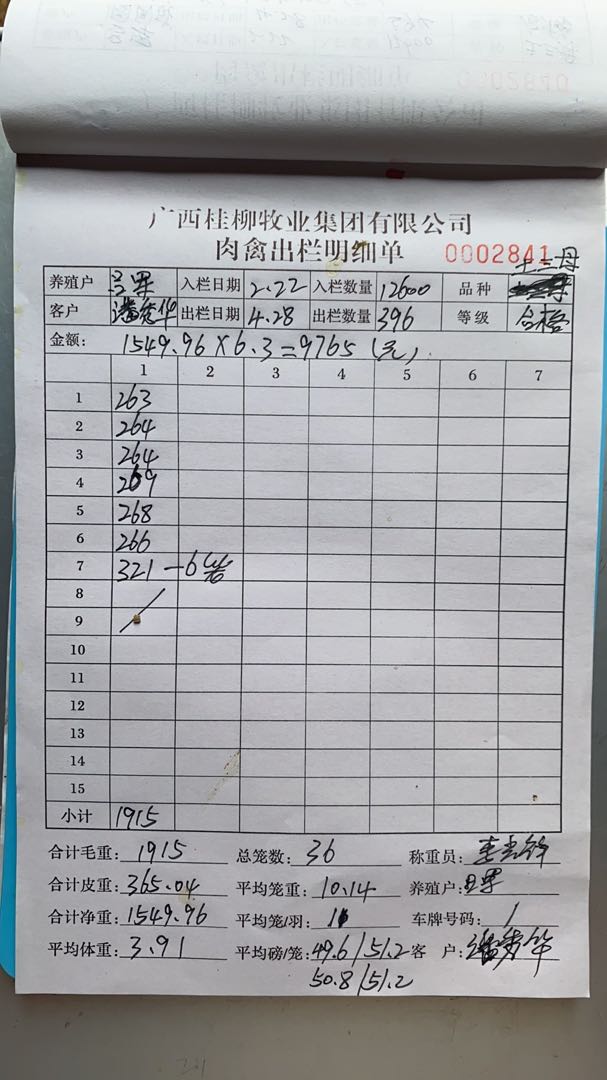 广西桂柳牧业集团有限公司
肉禽出栏明细单 0002841
土二母
养殖户 入栏日期 2.22 入栏数量 12600 品种
客户 出栏日期 4.28 出栏数量 396 等级 合格
金额: 1549.96×6.3=9765(元)
1 2 3 4 5 6 7
1 263
2 264
3 264
4 269
5 268
6 266
7 321-6笼
8
9
10
11
12
13
14
15
小计 1915
合计毛重: 1915 总笼数: 36 称重员:
合计皮重: 365.04 平均笼重: 10.14 养殖户:
合计净重: 1549.96 平均笼/羽: 11 车牌号码: /
平均体重: 3.91 平均磅/笼: 49.6/51.2 客 户:
50.8/51.2